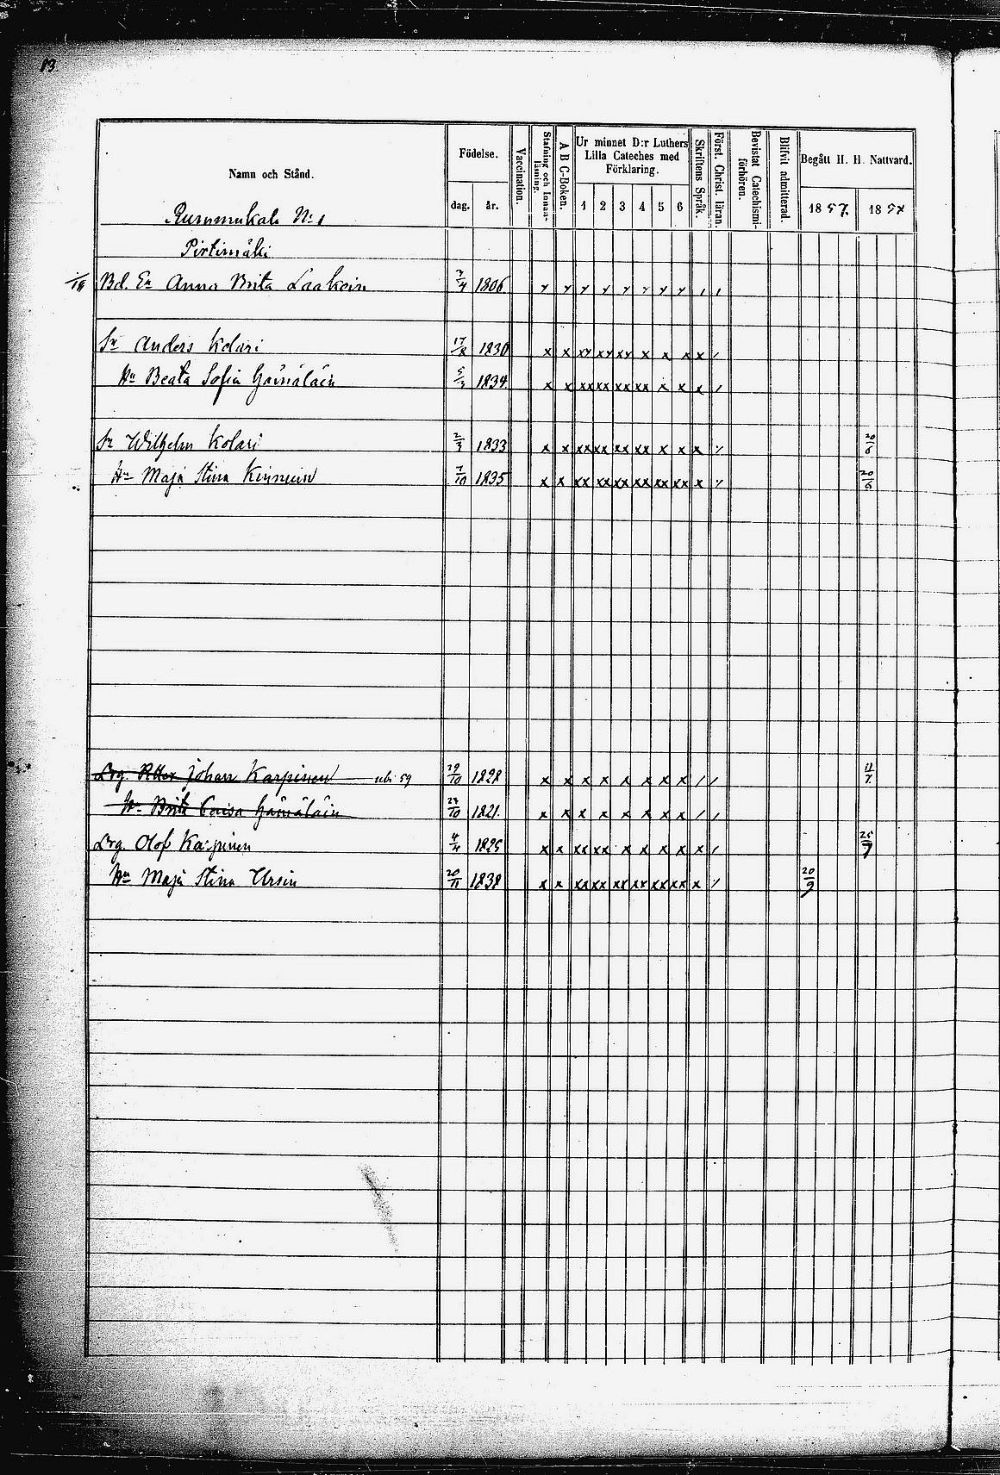 13
Namn och Stånd.
Födelse.
dag.
år.
Vaccination.
Stafning och Innanläsning.
A B C-Boken.
Ur minnet D:r Luthers Lilla Cateches med Förklaring.
1 2 3 4 5 6
Skriftens Språk.
Först. Christ. läran.
Bevistat Catechismiförhören.
Blifvit admitterad.
Begått H. H. Nattvard.
1857. 1858
Rummukala N:o 1
Pirtimäki
Bd. En Anna Brita Laakoin 7/4 1806 / /
Sn Anders Kolari 17/8 1830 x x xx xx xx x x x x /
Hu Beata Sofia Hämäläin 1834 x x xx xx xx xx x x x /
Sn Wilhelm Kolari 2/3 1833 x x xx xx xx xx x x x / 20/6
Hu Maja Stina Kinnuin 7/10 1835 x x xx xx xx xx xx xx x / 20/6
Drg. Johan Karpinen 59 29/10 1828 x x x x x x x x / / 11/7
Hu Brita Hämäläin 24/10 1821. x x x x x x x x / /
Drg Olof Karpinen 4/4 1825 x x xx xx x x x x x / 25/7
Hu Maja Stina Ursin 20/11 1838 x x xx xx xx xx xx xx x / 20/9